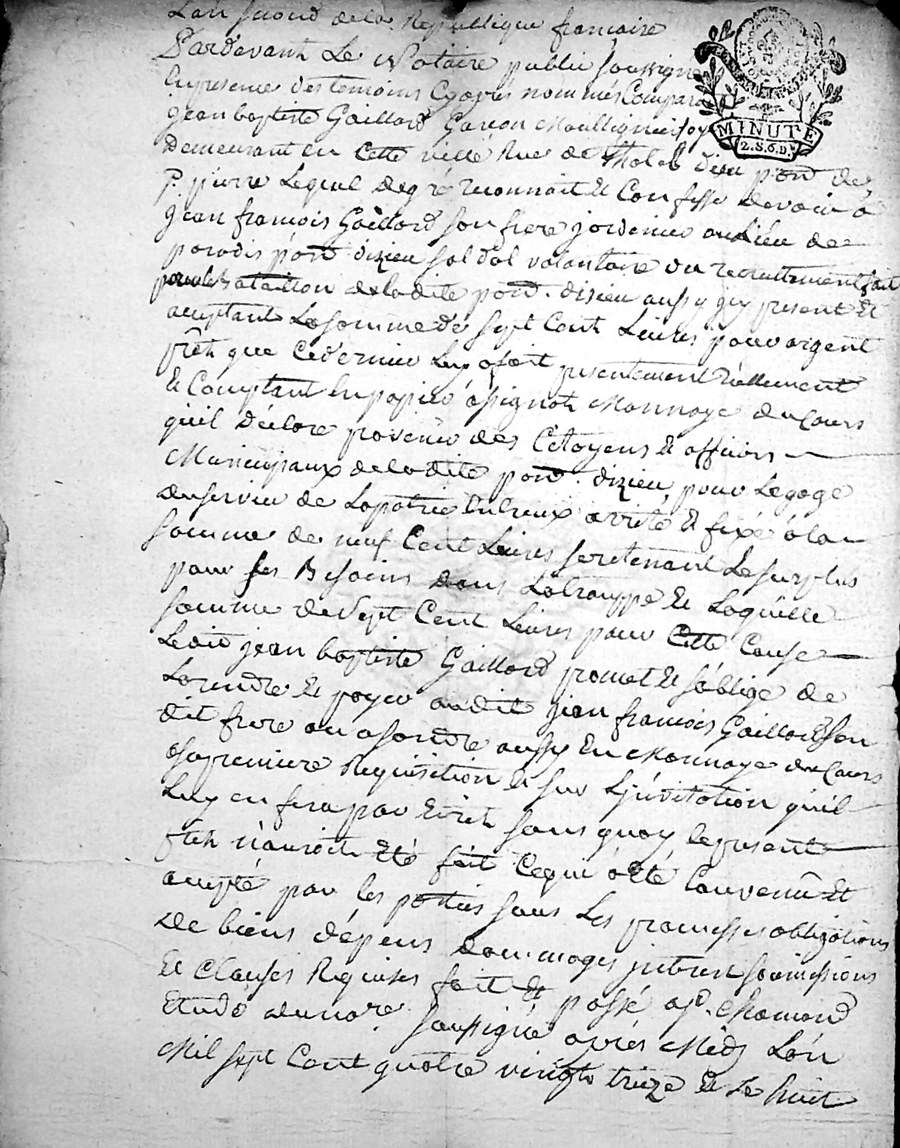 L'an second de la Republique francaise
Pardavant Le Notaire public soussigné
En presence des temoins Cyapres nommés Comparu
Jean baptiste Gaillard Garcon Moullignier soye
MINUTE
2.S.6.D.
Demeurant en Cette ville Rue de Lhotel dieu paroi. de
St. pierre Lequel de gré reconnoit et Confesse devoir a
Jean francois Gaillard son frere jardinier au Lieu de
paradis paroi. dizieu soldat volontaire du recrutement fait
pour le Bataillon de ladite paroi. dizieu aussy icy present et
acceptant La somme de sept Cent Livres pour argent
pret que Ce dernier Luy a fait presentement Réellement
et Comptant En papier assignats Monnaye du Cours
quil Déclare provenir des Citoyens et officiers
Municipaux de la dite paroi. dizieu pour Legage
du service de La patrie Entreux arreté et fixé a la
somme de neuf Cent Livres se retenant Le surplus
pour ses Besoins dans La trouppe et Laquelle
somme de Sept Cent Livres pour Cette Cause
Ledit jean baptiste Gaillard promet et s'oblige de
La rendre et payer audit jean francois Gaillard son
dit frere ou a son ordre aussy En Monnaye du Cours
a sa premiere Requisition et sur L'invitation qu'il
Luy en fera par Ecrit sans quoy le present
pret n'auroit Eté fait Ce qui a eté Convenu et
accepté par les parties sous Les promesses obligations
De biens dépens dommages interets soumissions
Et Clauses Requises fait et passé a St. Chamond
Etude du nore. soussigné aprés Midy L'an
Mil sept Cent quatre vingts treize et Le huit